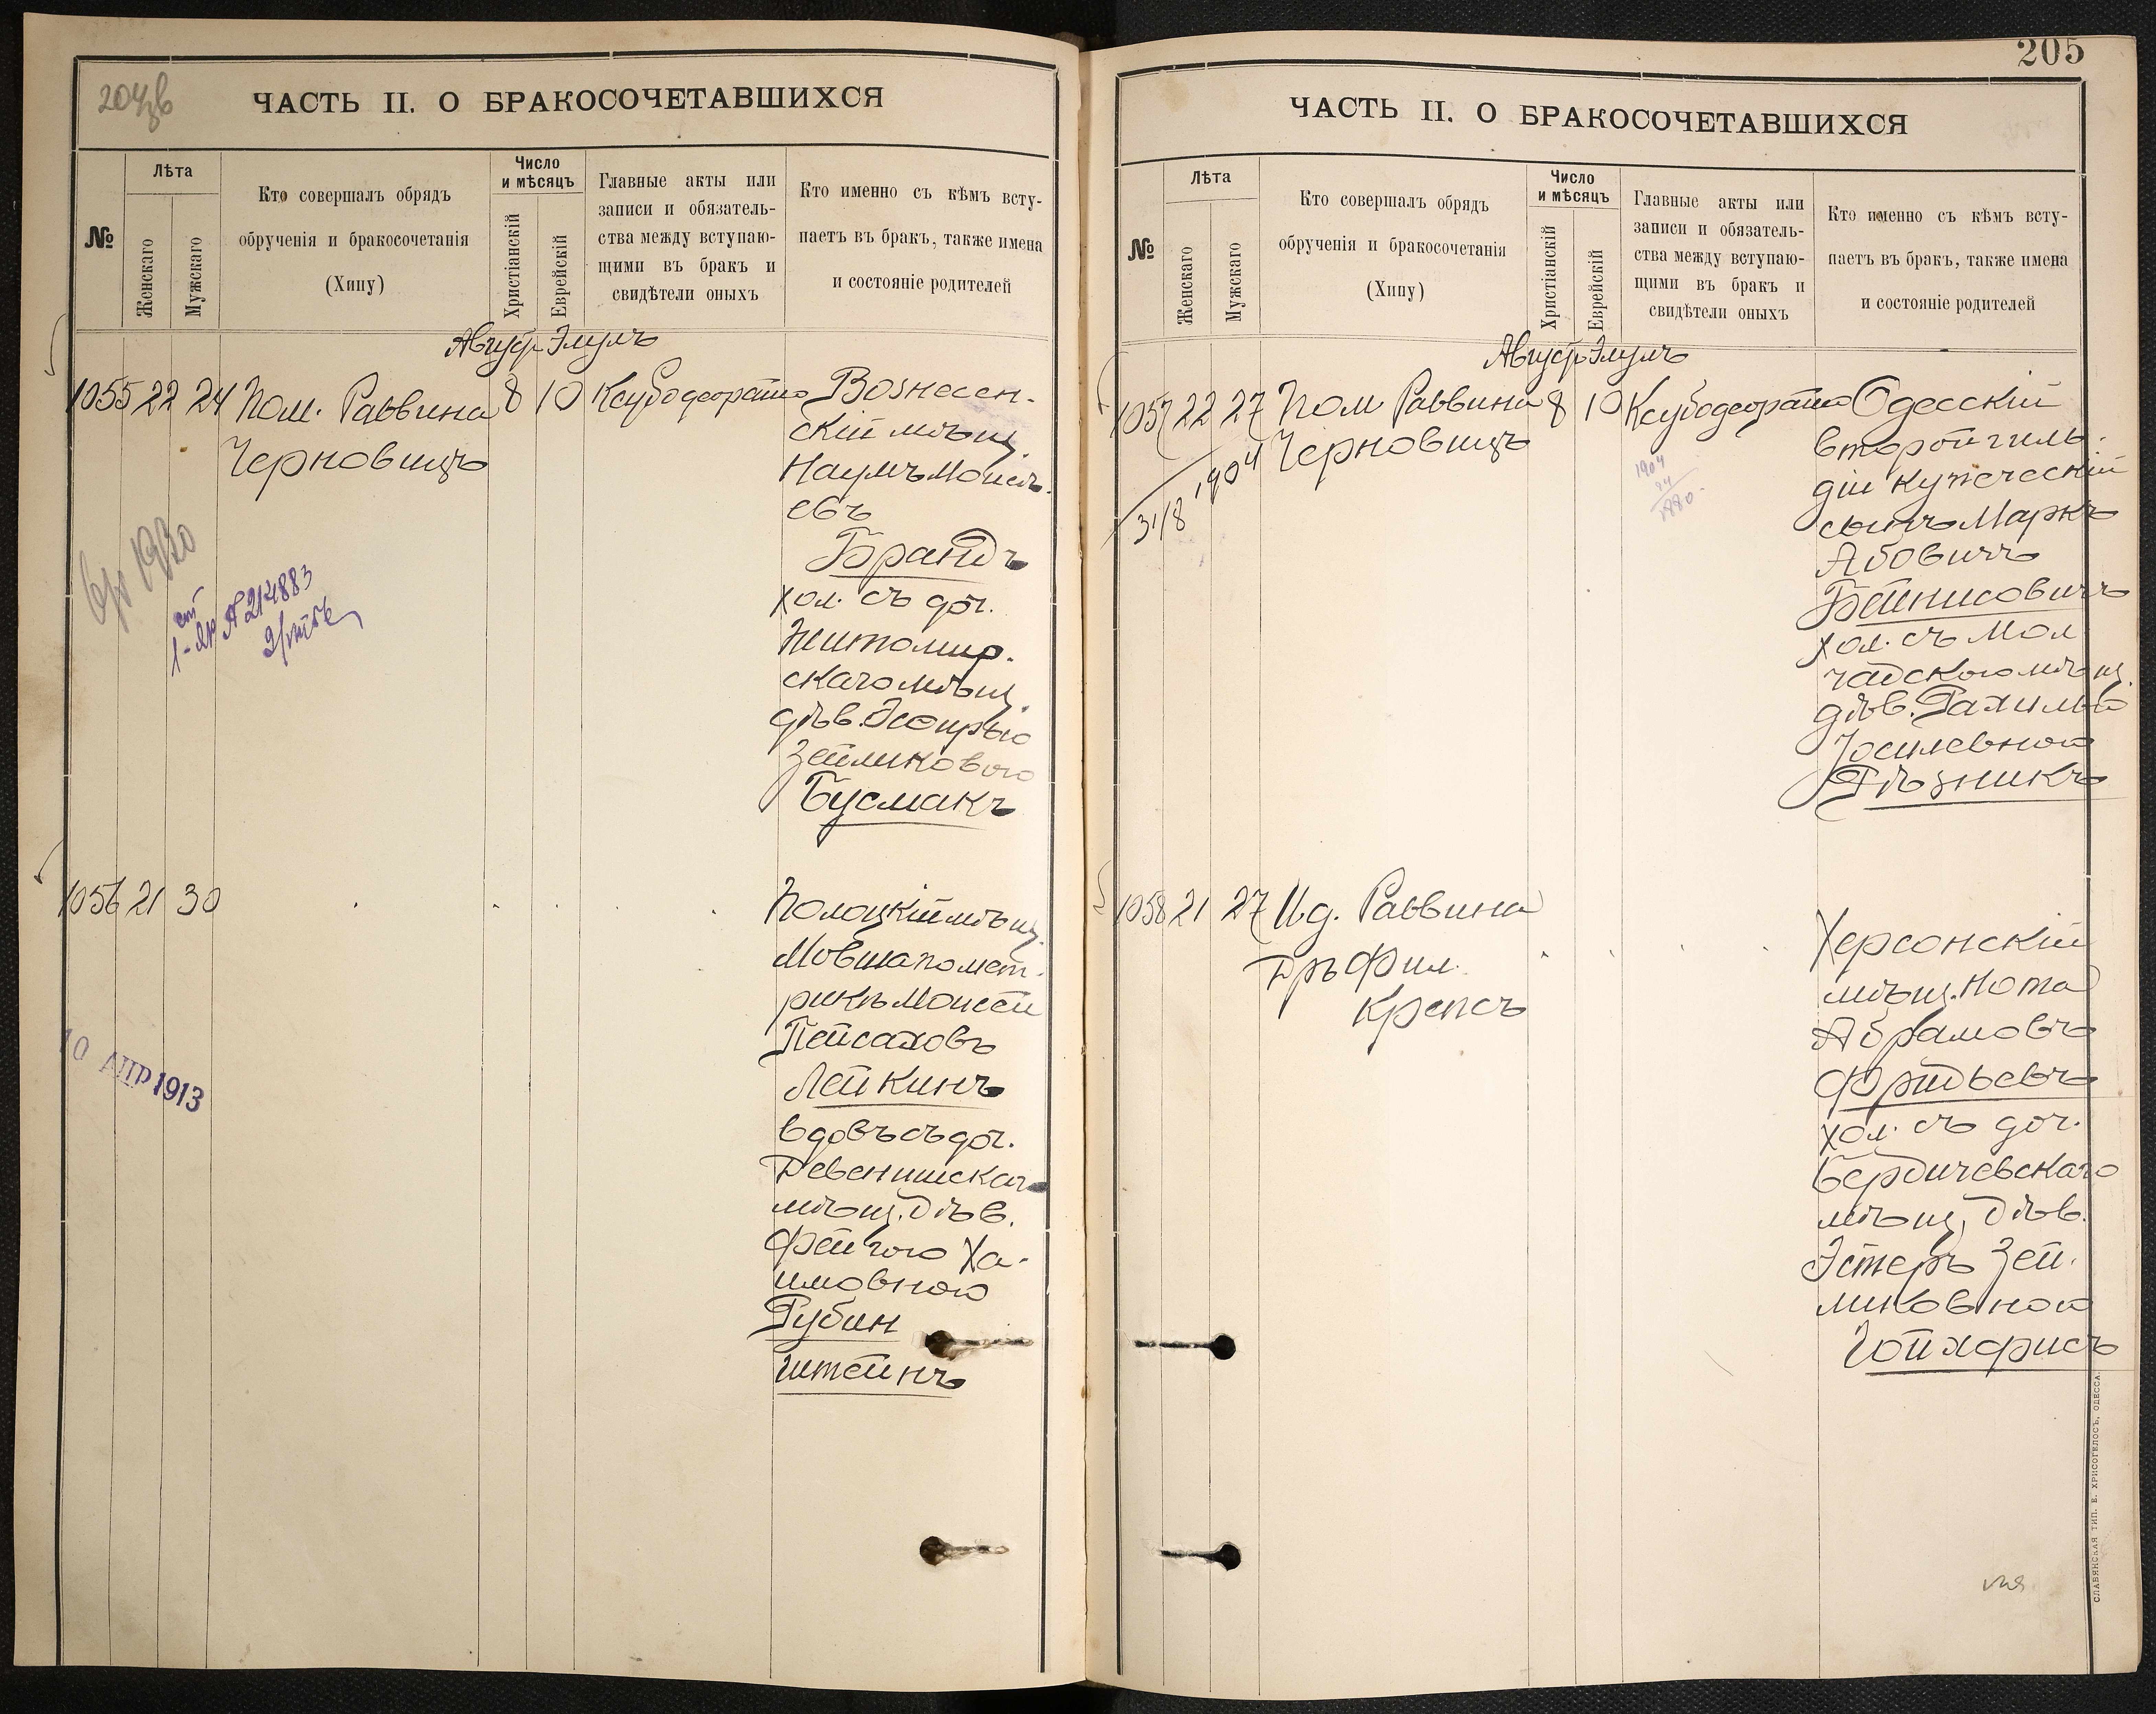 204
ЧАСТЬ II. О БРАКОСОЧЕТАВШИХСЯ
№
Лѣта
Женскаго
Мужскаго
Кто совершалъ обрядъ
обрученія и бракосочетанія
(Хипу)
Число
и мѣсяцъ
Христіанскій
Еврейскій
Главные акты или
записи и обязатель-
ства между вступаю-
щими въ бракъ и
свидѣтели оныхъ
Кто именно съ кѣмъ всту-
паетъ въ бракъ, также имена
и состояніе родителей
Август Элулъ
1055 22 24 Пом. Раввина 8 10
Черновицъ
Вознесен-
скій мѣщ.
Наумъ Моисѣ-
евъ
Брандъ
хол. съ доч.
Житомир-
скаго мѣщ.
дѣв. Эсѳирью
Зейликовою
Бусмакъ
1920
№ 214883
1056 21 30
Полоцкій мѣщ.
Мовша по мет-
рикѣ Моисей
Пейсаховъ
Лейкинъ
вдовъ съ доч.
Девенишскаг
мѣщ. дѣв.
Фейгою Ха-
имовною
Рубин
штейнъ
10 АПР 1913
205
ЧАСТЬ II. О БРАКОСОЧЕТАВШИХСЯ
№
Лѣта
Женскаго
Мужскаго
Кто совершалъ обрядъ
обрученія и бракосочетанія
(Хипу)
Число
и мѣсяцъ
Христіанскій
Еврейскій
Главные акты или
записи и обязатель-
ства между вступаю-
щими въ бракъ и
свидѣтели оныхъ
Кто именно съ кѣмъ всту-
паетъ въ бракъ, также имена
и состояніе родителей
Август Элулъ
1057 22 27 Пом Раввина 8 10
Черновицъ
31/8 1904
1904
24
1880
Одесскій
второй гиль-
діи купеческій
сынъ Маркъ
Абовичъ
Бейнисовичъ
хол. съ Мол
чадскою мѣщ.
дѣв. Рахилью
Іосилевною
Рѣзникъ
1058 21 27 И.д. Раввина
Дръ Фил.
Крепсъ
Херсонскій
мѣщ. Нота
Абрамовъ
Фридьевъ
хол. съ доч.
Бердичевскаго
мѣщ, дѣв.
Эстеръ Зей-
ликовною
Гойхфисъ
СЛАВЯНСКАЯ ТИП. Е. ХРИСОГЕЛОСЪ, ОДЕССА.